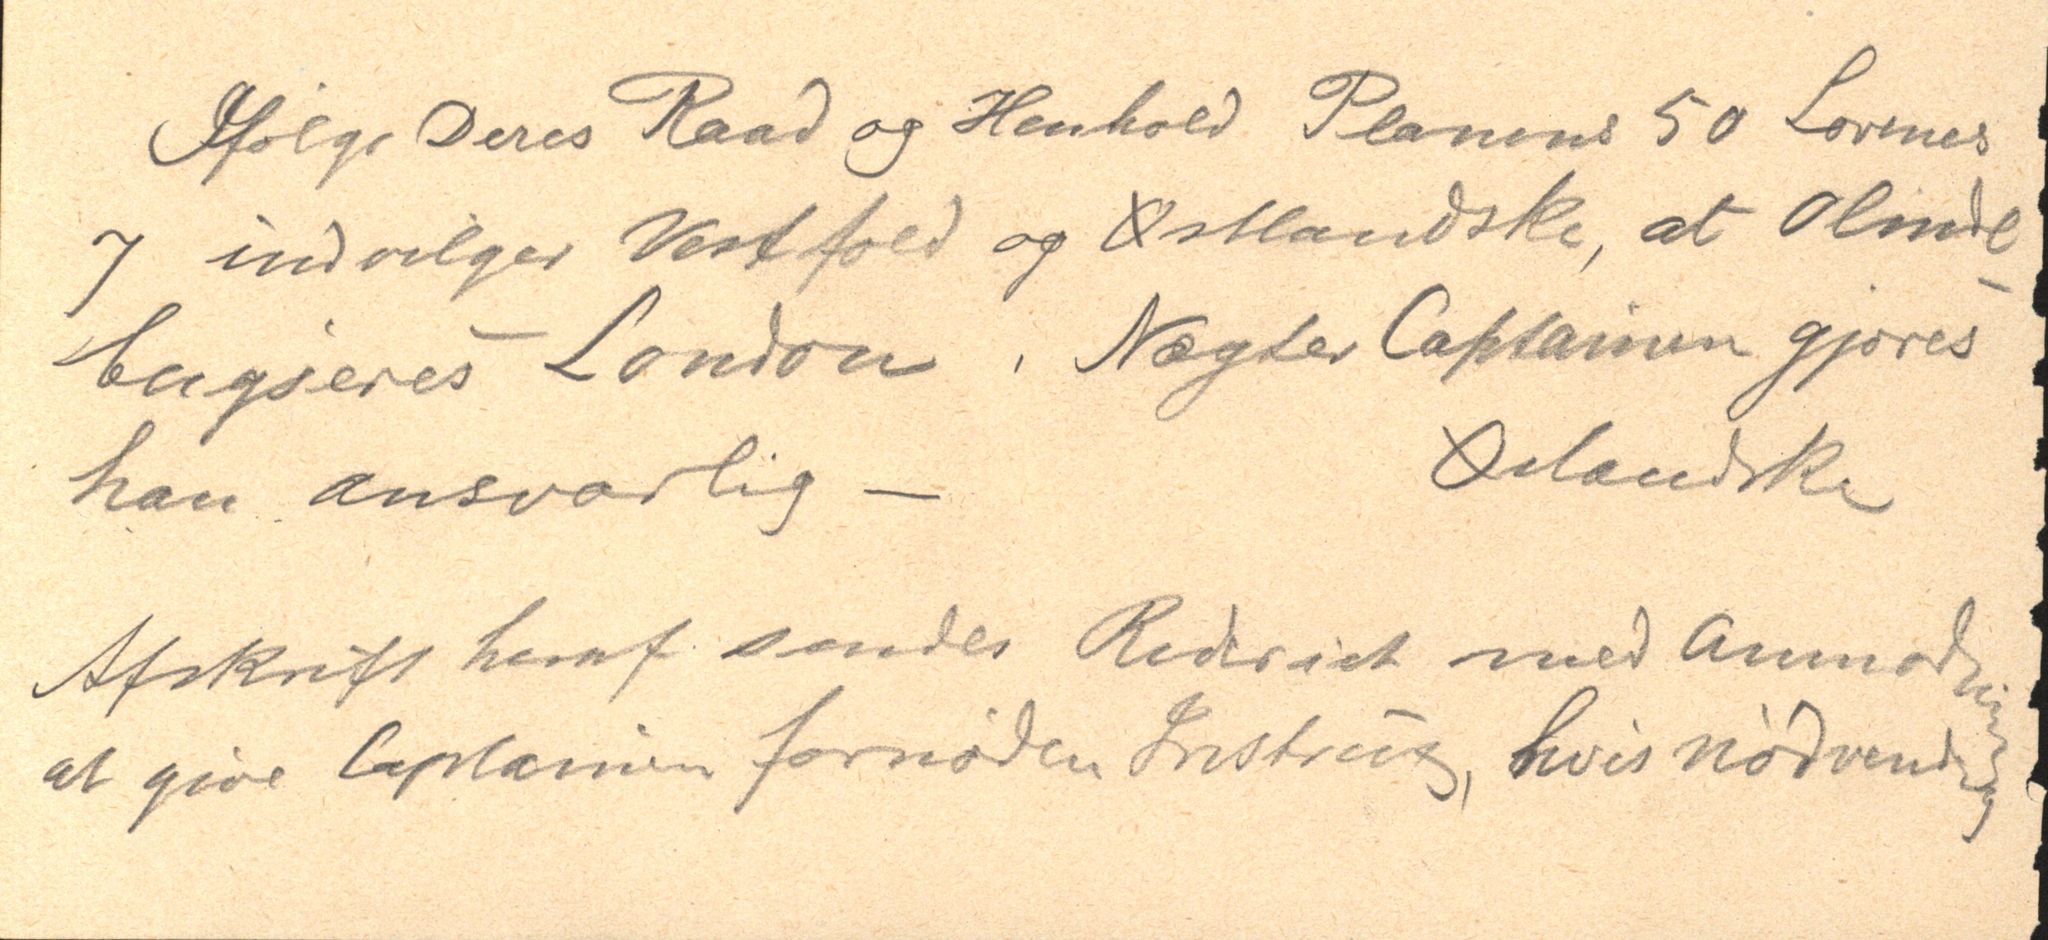 Ifølge Deres Raad og Henhold Planens 50 Lovenes
7 indvilger Vestfold og Østlandske, at Olinde
bugseres London. Nægter Captainen gjøres
han ansvarlig — Østlandske
Afskrift heraf sendes Rederiet med Anmodning
at give Captainen fornøden Instrux, hvis nødvendig